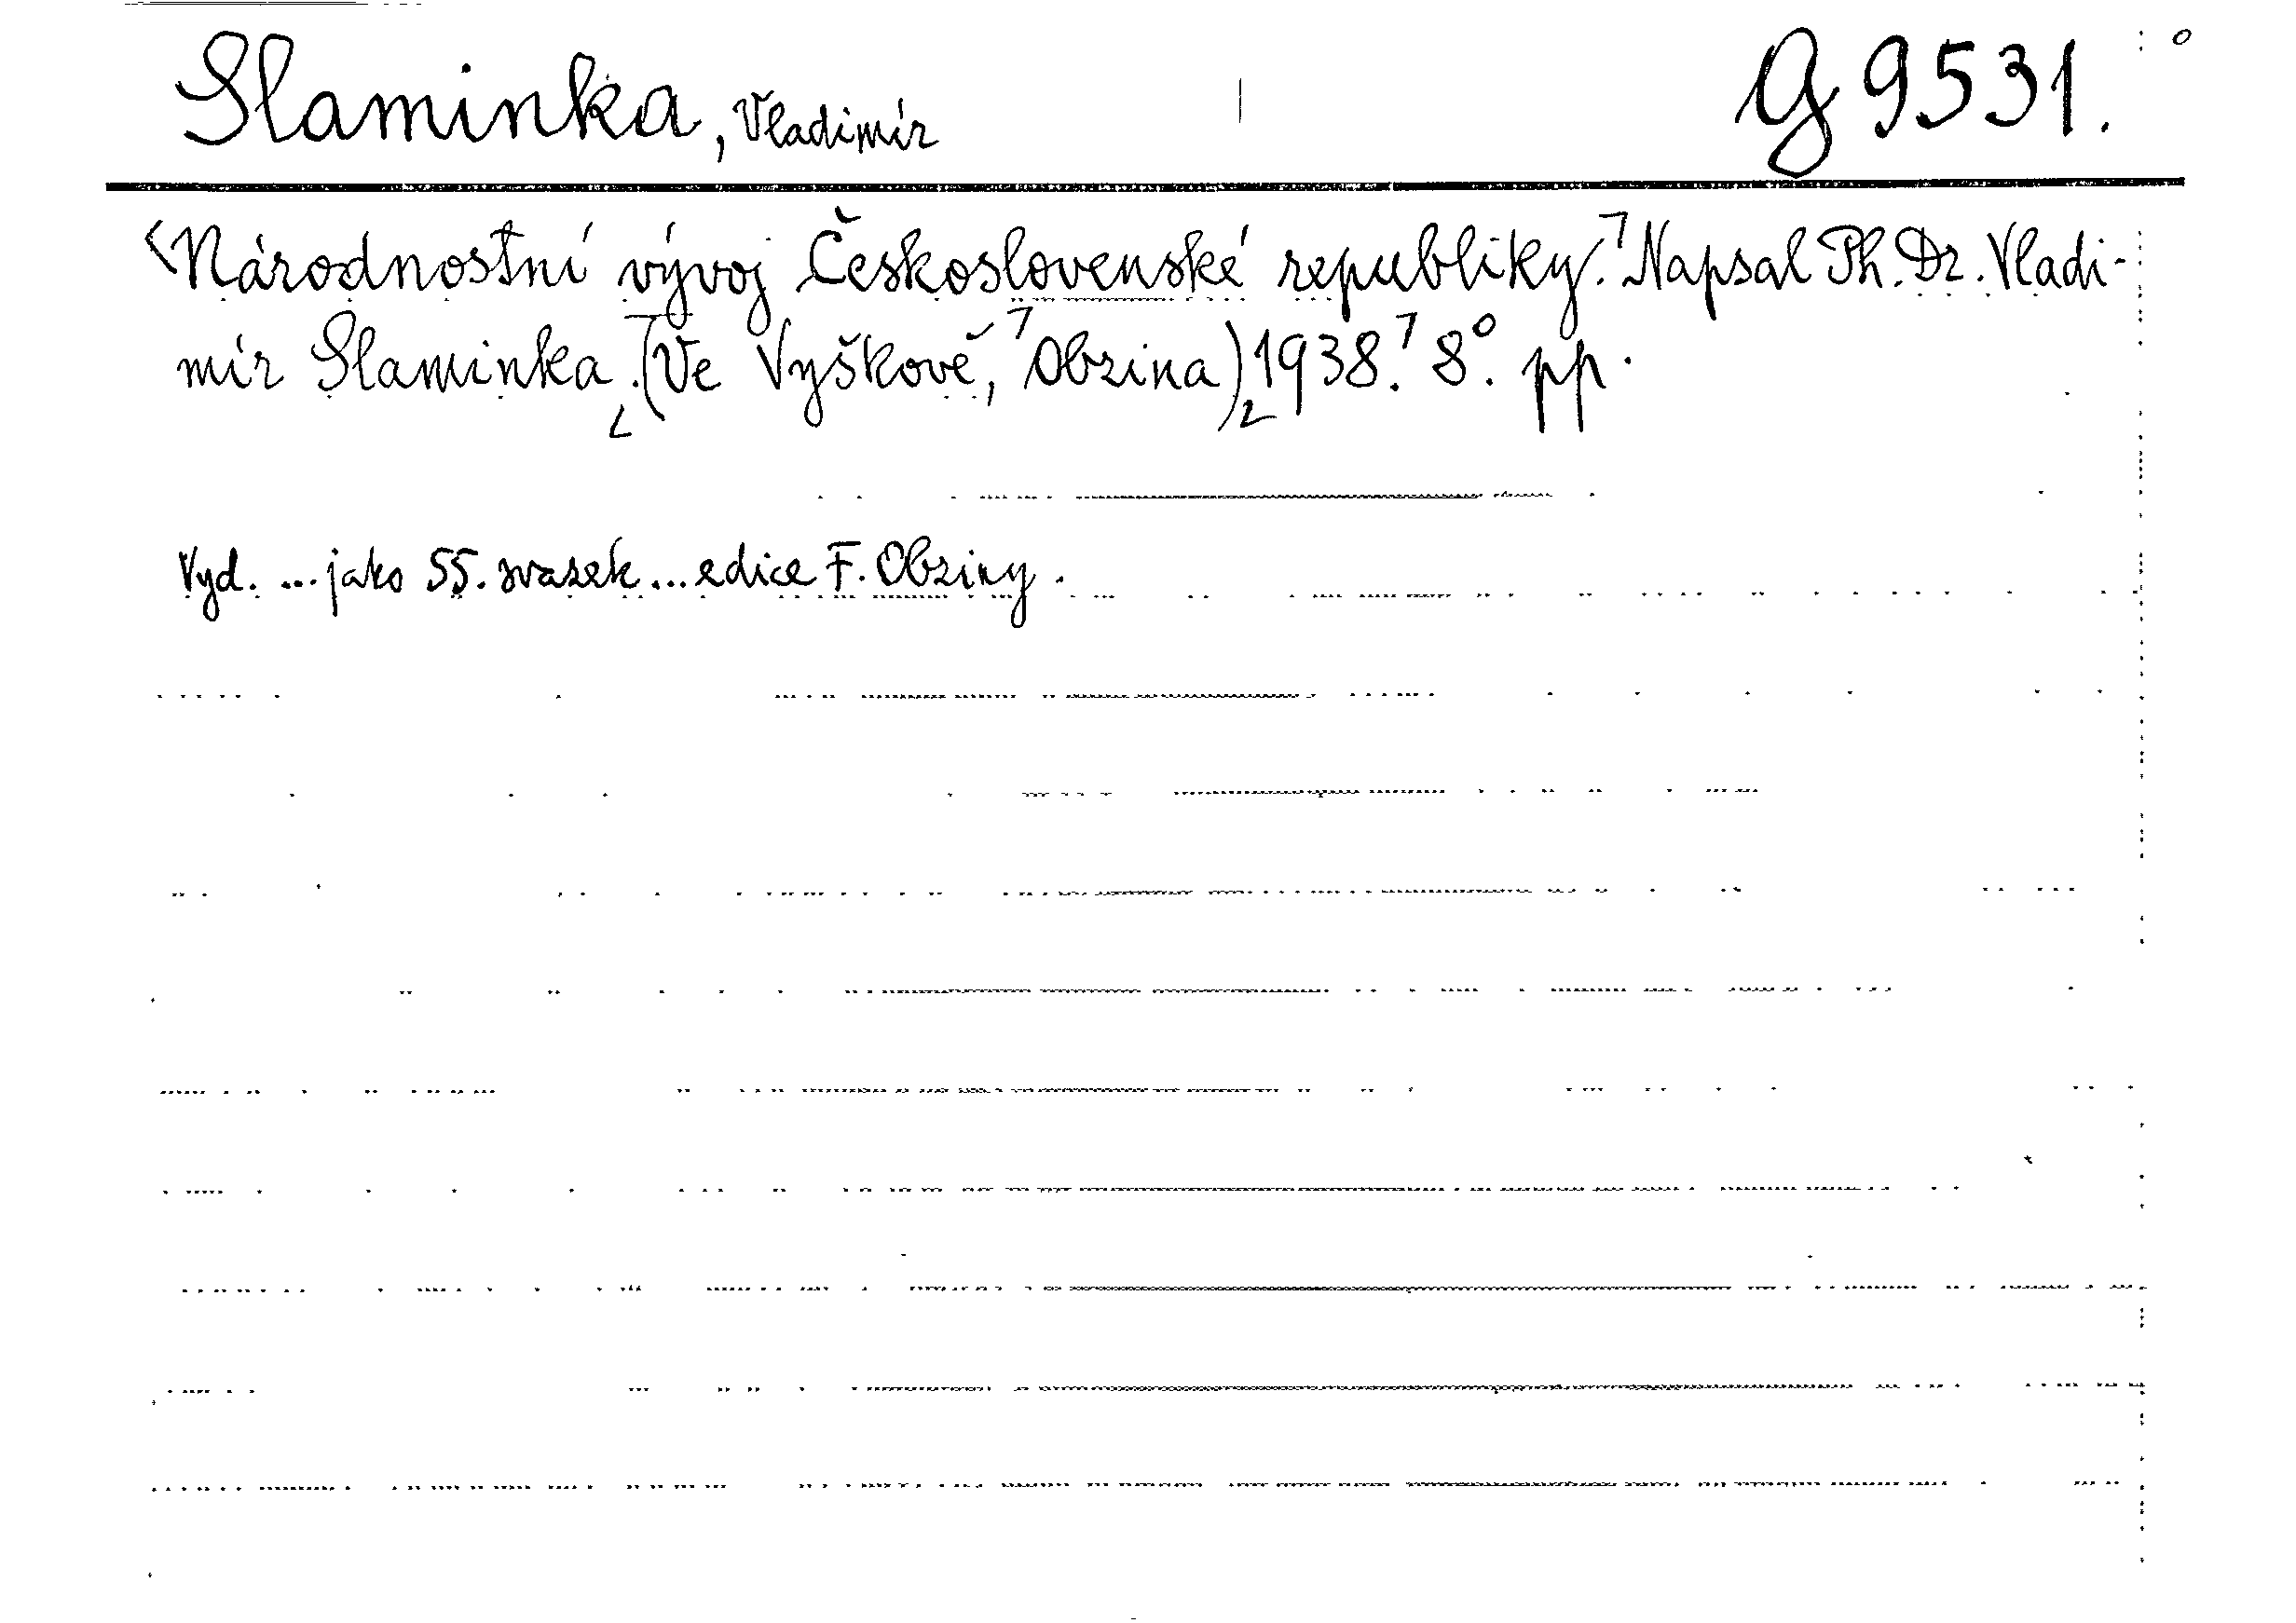 Slaminka, Vladimír G 9531.
Národnostní vývoj Československé republiky. Napsal Ph. Dr. Vladi-
mír Slaminka. (Ve Vyškově, Obzina) 1938. 8°. pp.
Vyd. ... jako 55. svazek ... edice F. Obziny.